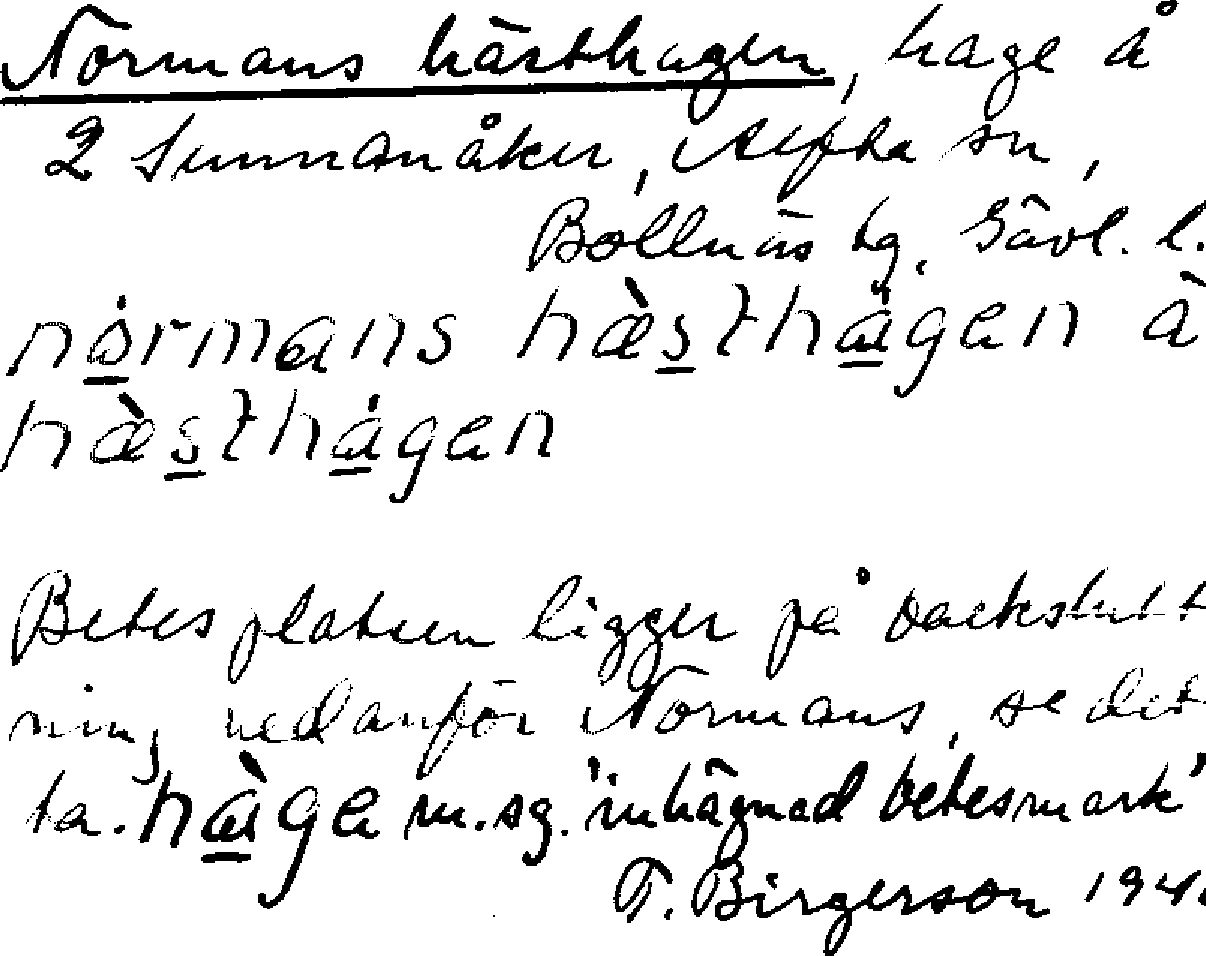 Normans hästhagen, hage å
2 Sunnanåker, Alfta sn,
Bollnäs tg, Gävl. l.
nòrmans hæ̀sthàgen å
hæ̀sthàgen
Betesplatsen ligger på backslutt
ning nedanför Normans, se det
ta. hàge m.sg. 'inhägnad betesmark'
T. Birgerson